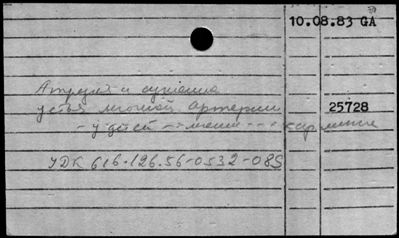 10.08.83 GA
Атрезия и сужение
устья легочной артерии
25728
- у детей -
УДК 616.126.56-053.2-085